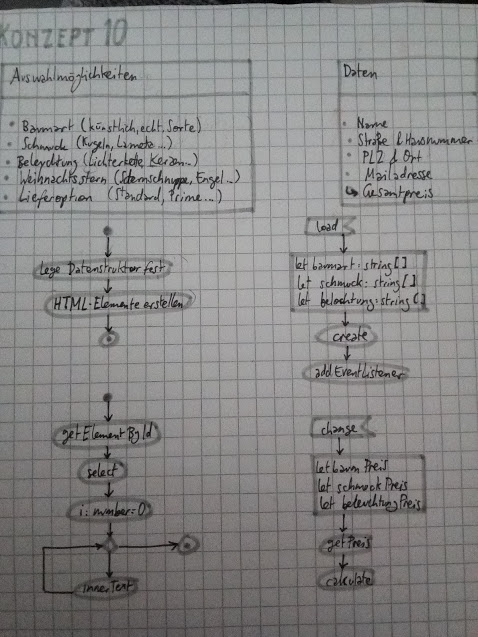 KONZEPT 10
Auswahlmöglichkeiten
• Baumart (künstlich, echt, Sorte)
• Schmuck (Kugeln, Lametta...)
• Beleuchtung (Lichterkette, Kerzen...)
• Weihnachtsstern (Sternschnuppe, Engel...)
• Lieferoption (Standard, Prime...)
Daten
• Name
• Straße & Hausnummer
• PLZ & Ort
• Mailadresse
↳ Gesamtpreis
Lege Datenstruktur fest
HTML-Elemente erstellen
load
let baumart: string[]
let schmuck: string[]
let beleuchtung: string[]
create
addEventListener
getElementById
select
i: number = 0
innerText
change
let baumPreis
let schmuckPreis
let beleuchtungPreis
getPreis
calculate